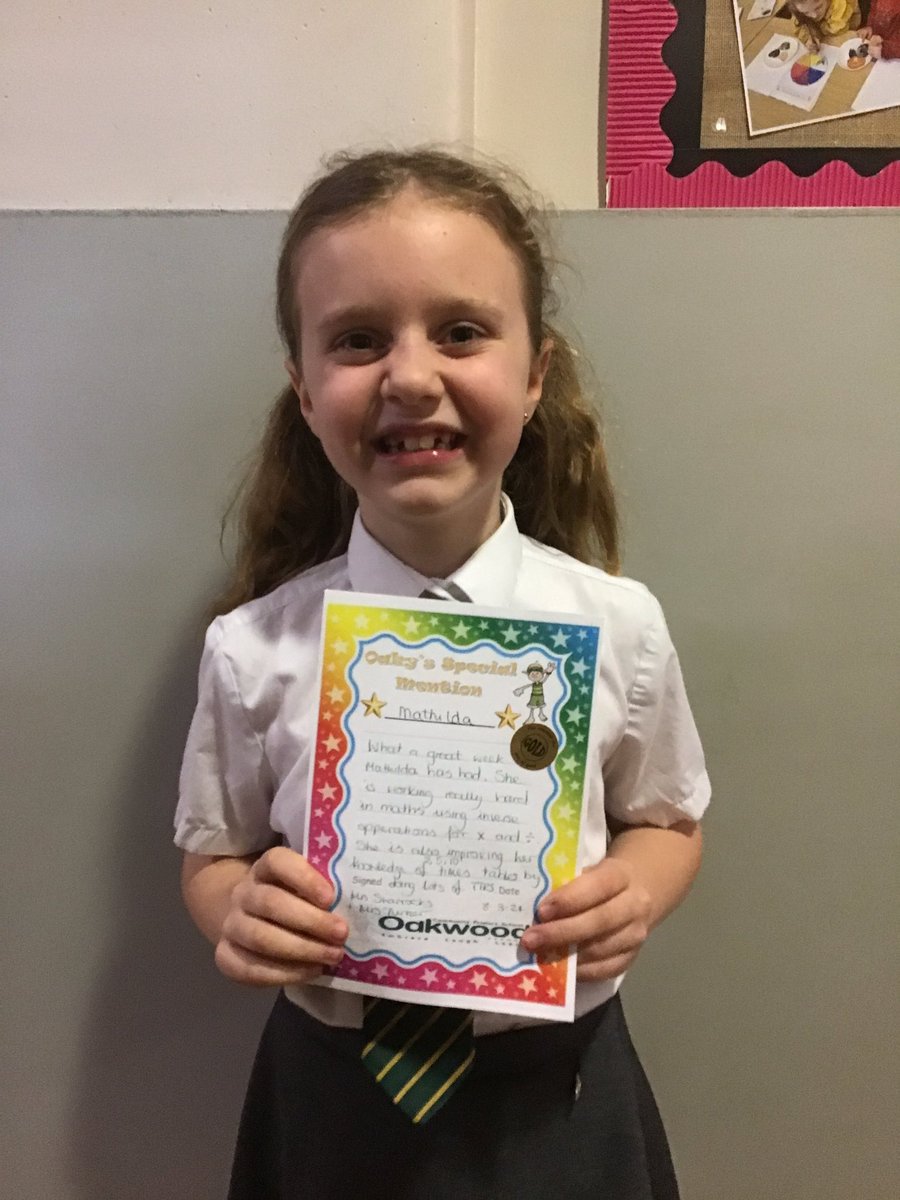 Oaky's Special
Mention
Mathilda
GOLD
What a great week
Mathilda has had. She
is working really hard
in maths using inverse
opperations for x and ÷
She is also improving her
2 5, 10
knowledge of times tables by
Signed doing lots of TTRS Date
Mrs Sharrocks 8.3.24
+ Mrs Turner
Community Primary School
Oakwood
Embrace Laugh Learn